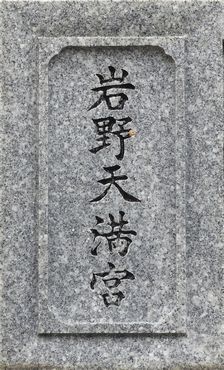 岩野天満宮